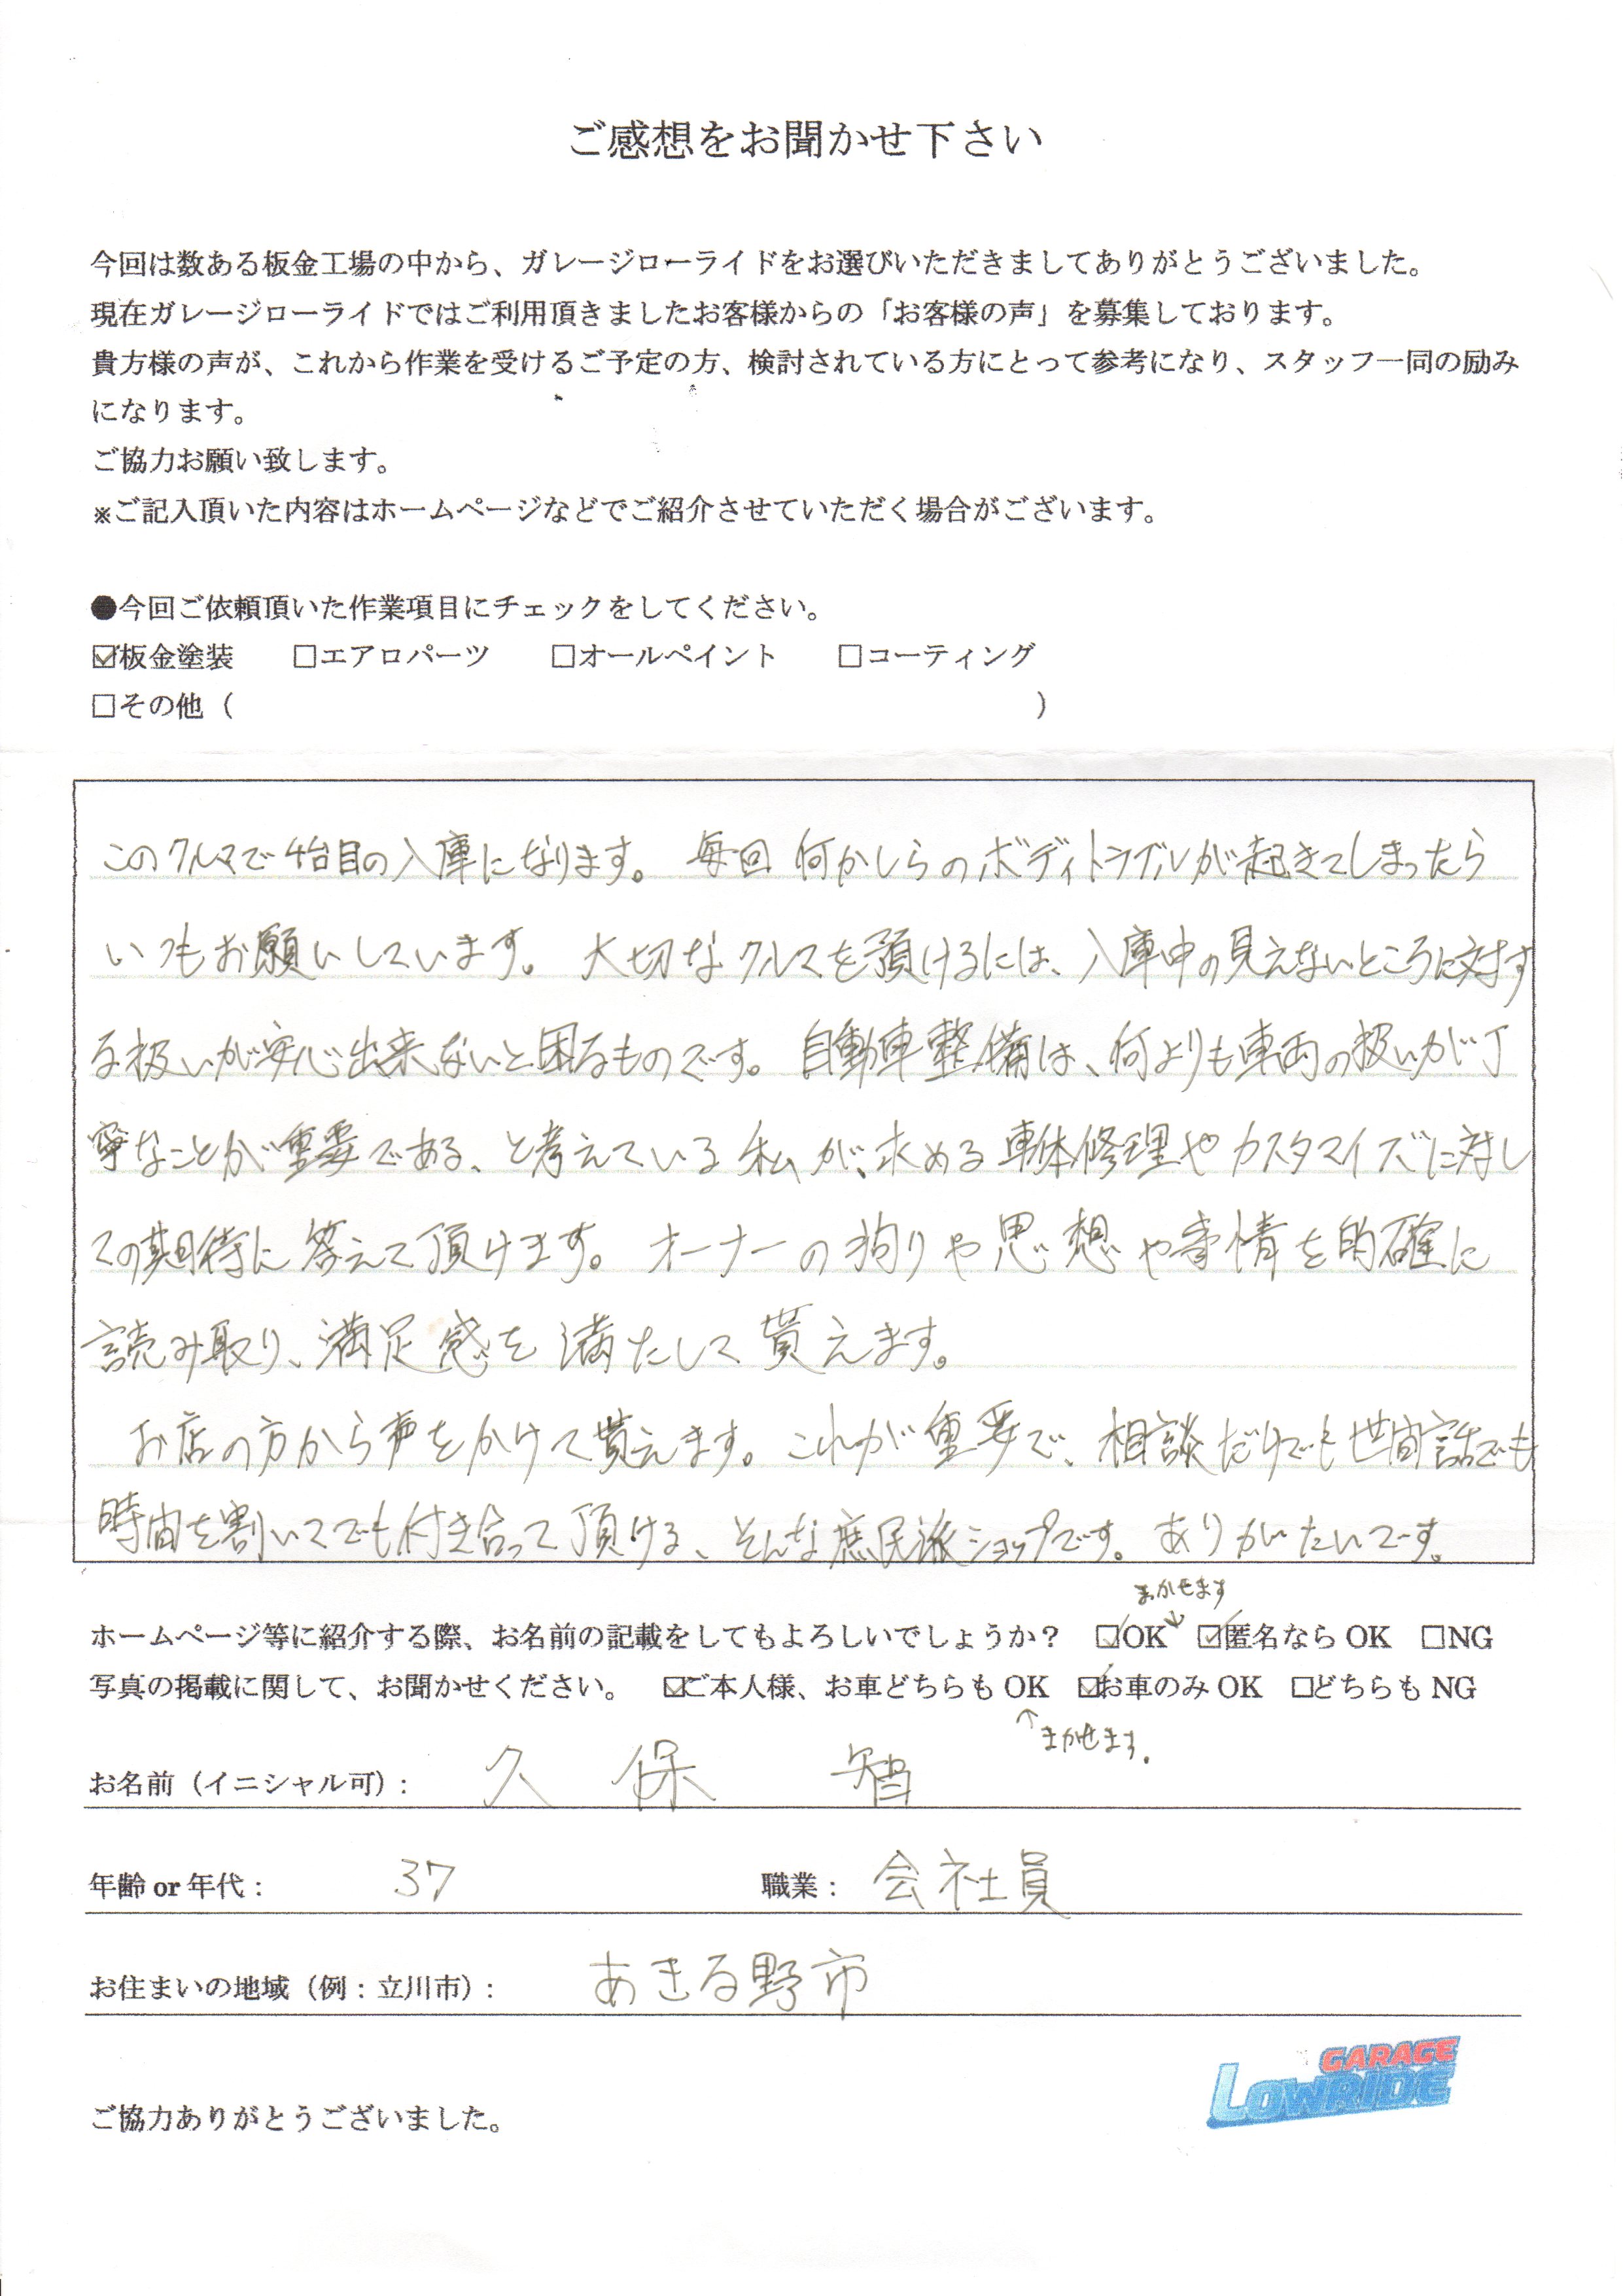 ご感想をお聞かせ下さい
今回は数ある板金工場の中から、ガレージローライドをお選びいただきましてありがとうございました。
現在ガレージローライドではご利用頂きましたお客様からの「お客様の声」を募集しております。
貴方様の声が、これから作業を受けるご予定の方、検討されている方にとって参考になり、スタッフ一同の励み
になります。
ご協力お願い致します。
※ご記入頂いた内容はホームページなどでご紹介させていただく場合がございます。
●今回ご依頼頂いた作業項目にチェックをしてください。
☑板金塗装 □エアロパーツ □オールペイント □コーティング
□その他（ ）
このクルマで4台目の入庫になります。毎回何かしらのボディトラブルが起きてしまったら
いつもお願いしています。大切なクルマを預けるには、入庫中の見えないところに対す
る扱いが安心出来ないと困るものです。自動車整備は、何よりも車両の扱いが丁
寧なことが重要である、と考えている私が、求める車体修理やカスタマイズに対し
ての期待に答えて頂けます。オーナーの拘りや思想や事情を的確に
読み取り、満足感を満たして貰えます。
お店の方から声をかけて貰えます。これが重要で、相談だけでも世間話でも
時間を割いてでも付き合って頂ける、そんな庶民派ショップです。ありがたいです。
まかせます
ホームページ等に紹介する際、お名前の記載をしてもよろしいでしょうか？ ☑OK ☑匿名なら OK □NG
写真の掲載に関して、お聞かせください。 ☑ご本人様、お車どちらも OK ☑お車のみ OK □どちらも NG
↑まかせます.
お名前（イニシャル可）: 久保 智
年齢 or 年代： 37 職業： 会社員
お住まいの地域（例：立川市）： あきる野市
GARAGE
LOWRIDE
ご協力ありがとうございました。